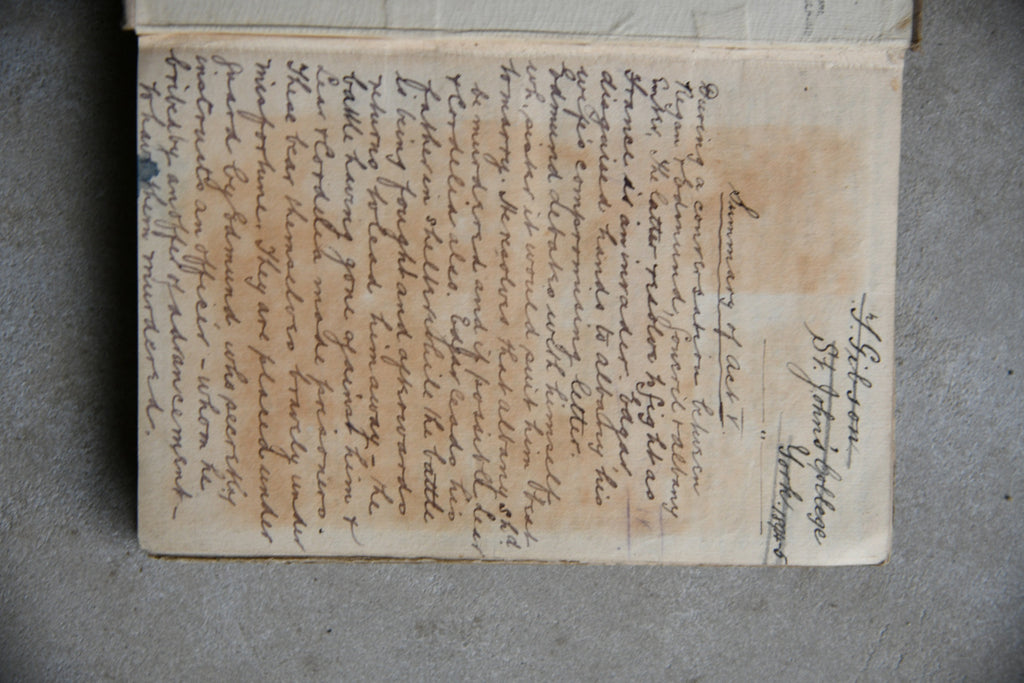 T. Gibson
St. John's College
York.
Summary of Act V.
During a conversation between
Regan & Edmund, Goneril & Albany
enter. The latter resolve to fight as
France is an invader. Edgar
disguised, hands to Albany his
wife's compromising letter.
Edmund debates with himself
wh. sister it would suit him best
to marry. He resolves that Albany shd.
be murdered and if possible Lear
& Cordelia also. Edgar leads his
father in shelter while the battle
is being fought and afterwards
returns to lead him away – the
battle having gone against him &
Lear & Cordelia made prisoners.
These bear themselves bravely under
misfortune. They are placed under
guard by Edmund who secretly
instructs an officer – whom he
bribes by an offer of advancement –
to have them murdered.